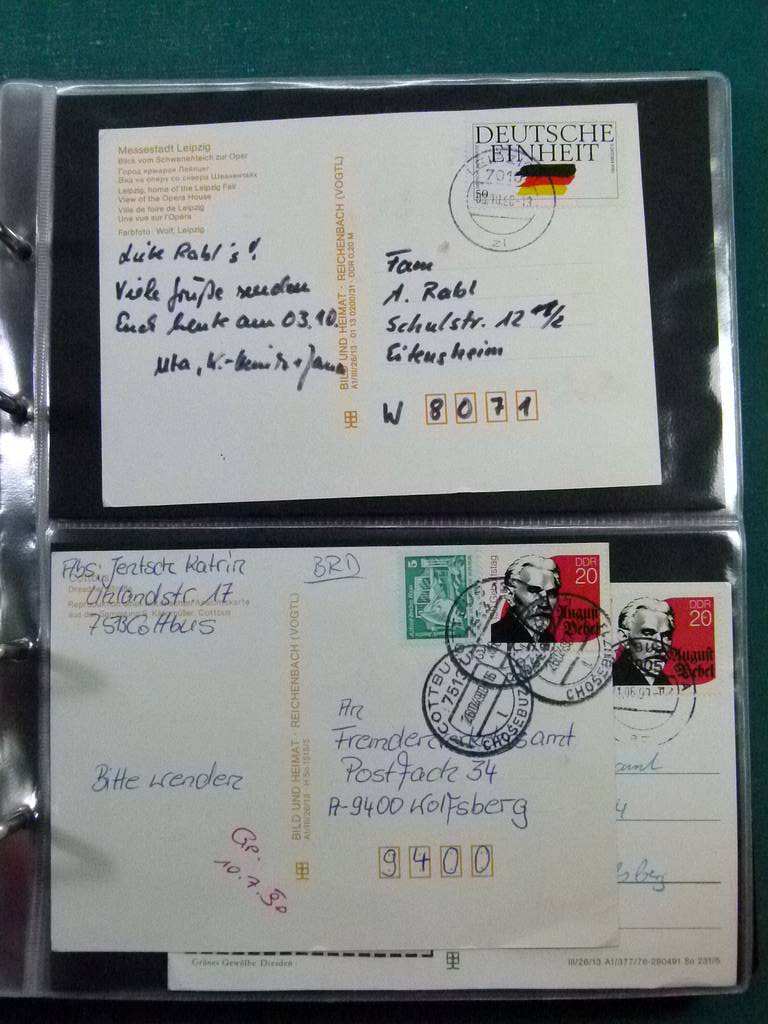 Messestadt Leipzig
Blick vom Schwanenteich zur Oper
Город ярмарок Лейпциг
Вид на оперу со сквера Шванентайх
Leipzig, home of the Leipzig Fair
View of the Opera House
Ville de foire de Leipzig
Une vue sur l'Opéra
Farbfoto: Wolf, Leipzig
Liebe Rabl's!
Viele Grüße senden
Euch heute am 03.10.
Uta,
BILD UND HEIMAT · REICHENBACH (VOGTL)
A1/III/26/13 · 01 13 0200/31 · DDR 0,20 M
DEUTSCHE
EINHEIT
50
7010
Fam
A. Rabl
Schulstr. 12
Eitensheim
W 8071
Abs: Jentsch Katrin
Uhlandstr. 17
75 Cottbus
Cottbus
BRD
Bitte wenden
BILD UND HEIMAT · REICHENBACH (VOGTL)
5
DDR
20
August
Bebel
COTTBUS
7513
CHOŚEBUZ
An
Postfach 34
A-9400 Wolfsberg
9400
10.7.90
DDR
20
August
Bebel
Grünes Gewölbe Dresden
III/26/13 A1/377/76-290491 So 231/5